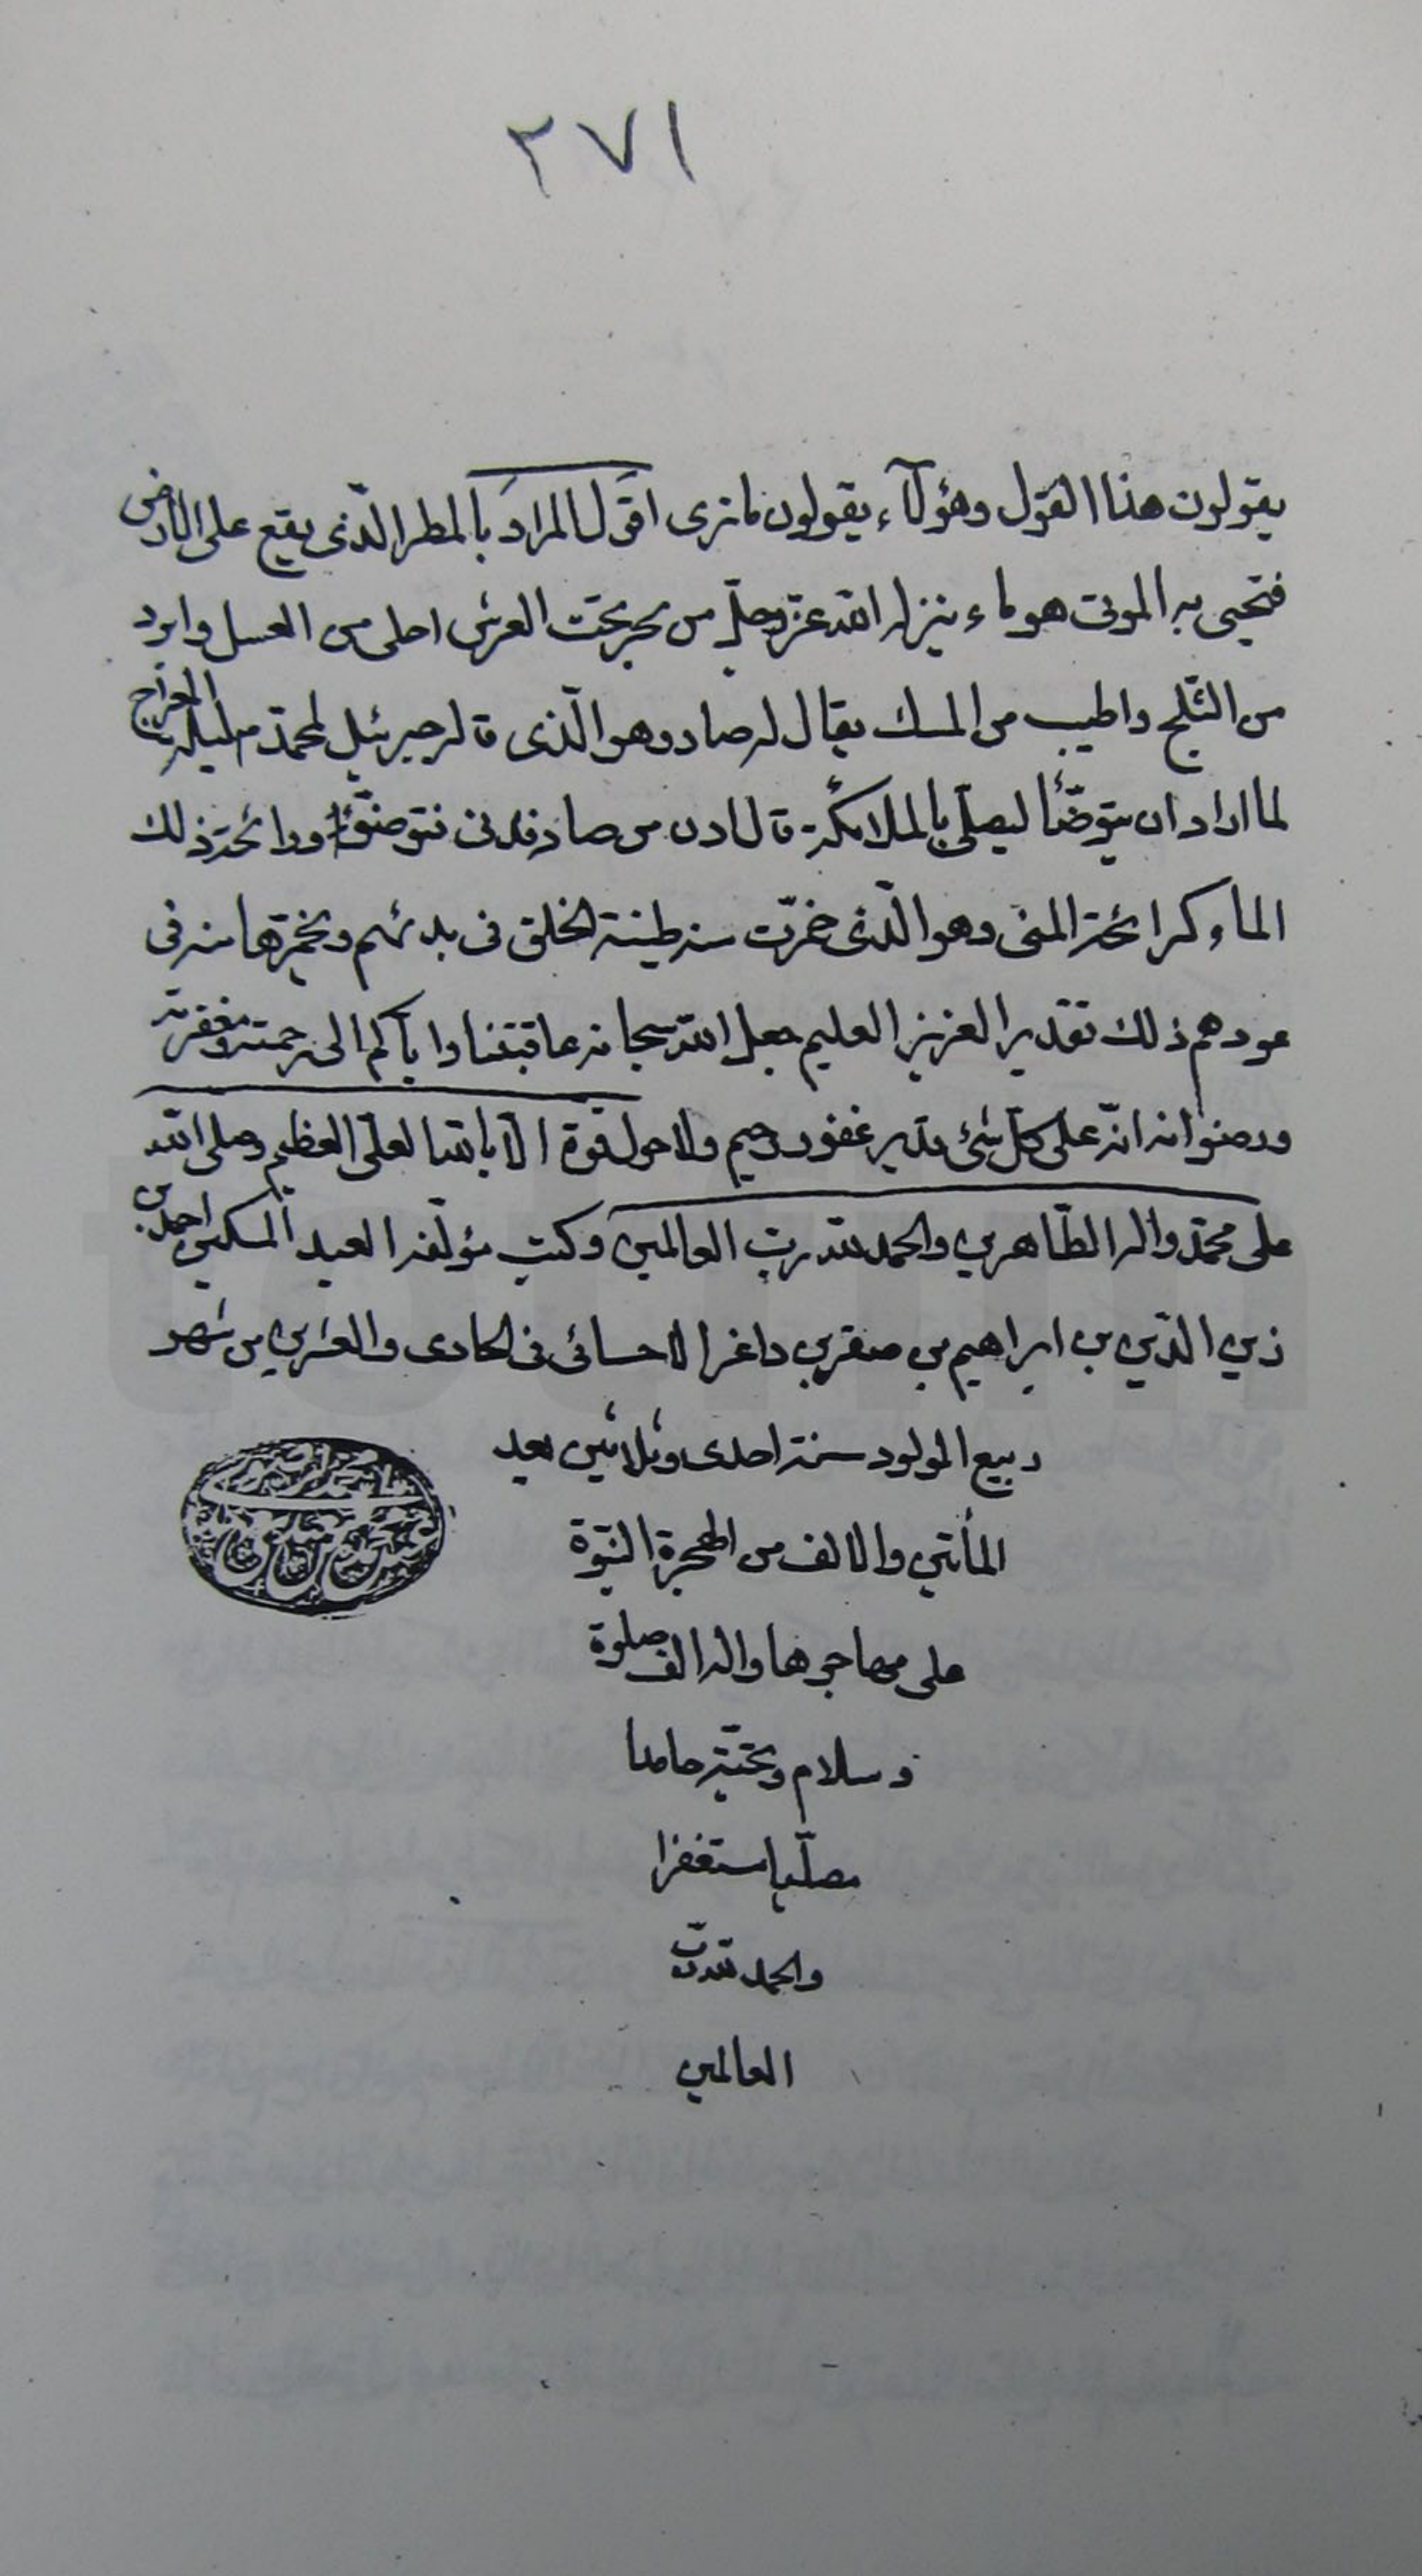 ٢٧١
يقولون هذا القول وهؤلآء يقولون ما ترى اقول المراد بالمطر الّذى يقع على الارض
فتحيى به الموتى هو ماء ينزله الله عزّ وجلّ من بحر تحت العرش احلى من العسل وابرد
من الثّلج واطيب من المسك يقال له صاد وهو الّذى قال جبرئيل لمحمّد ص ليلة المعراج
لما اراد ان يتوضّأ ليصلّى بالملائكة قال ادن من صاد فدنى فتوضّأ ورائحة ذلك
الماء كرائحة المنى وهو الّذى خمّرت منه طينة الخلق فى بدئهم وتخمّرها منه فى
عودهم ذلك تقدير العزيز العليم جعل الله سبحانه عاقبتنا وايّاكم الى رحمته ومغفرته
ورضوانه انّه على كلّ شئ قدير غفور رحيم ولا حول ولا قوة الّا بالله العلىّ العظيم وصلى الله
على محمّد واله الطّاهرين والحمد لله ربّ العالمين وكتب مؤلّفه العبد المسكين احمد بن
زين الدّين بن ابراهيم بن صقر بن داغر الاحسائى فى الحادى والعشرين من شهر
ربيع المولود سنة احدى وثلاثين بعد
المأتين والالف من الهجرة النبوّة
على مهاجرها واله الف صلوة
وسلام وتحيّة حامدا
مصلّيا مستغفرا
والحمد لله ربّ
العالمين